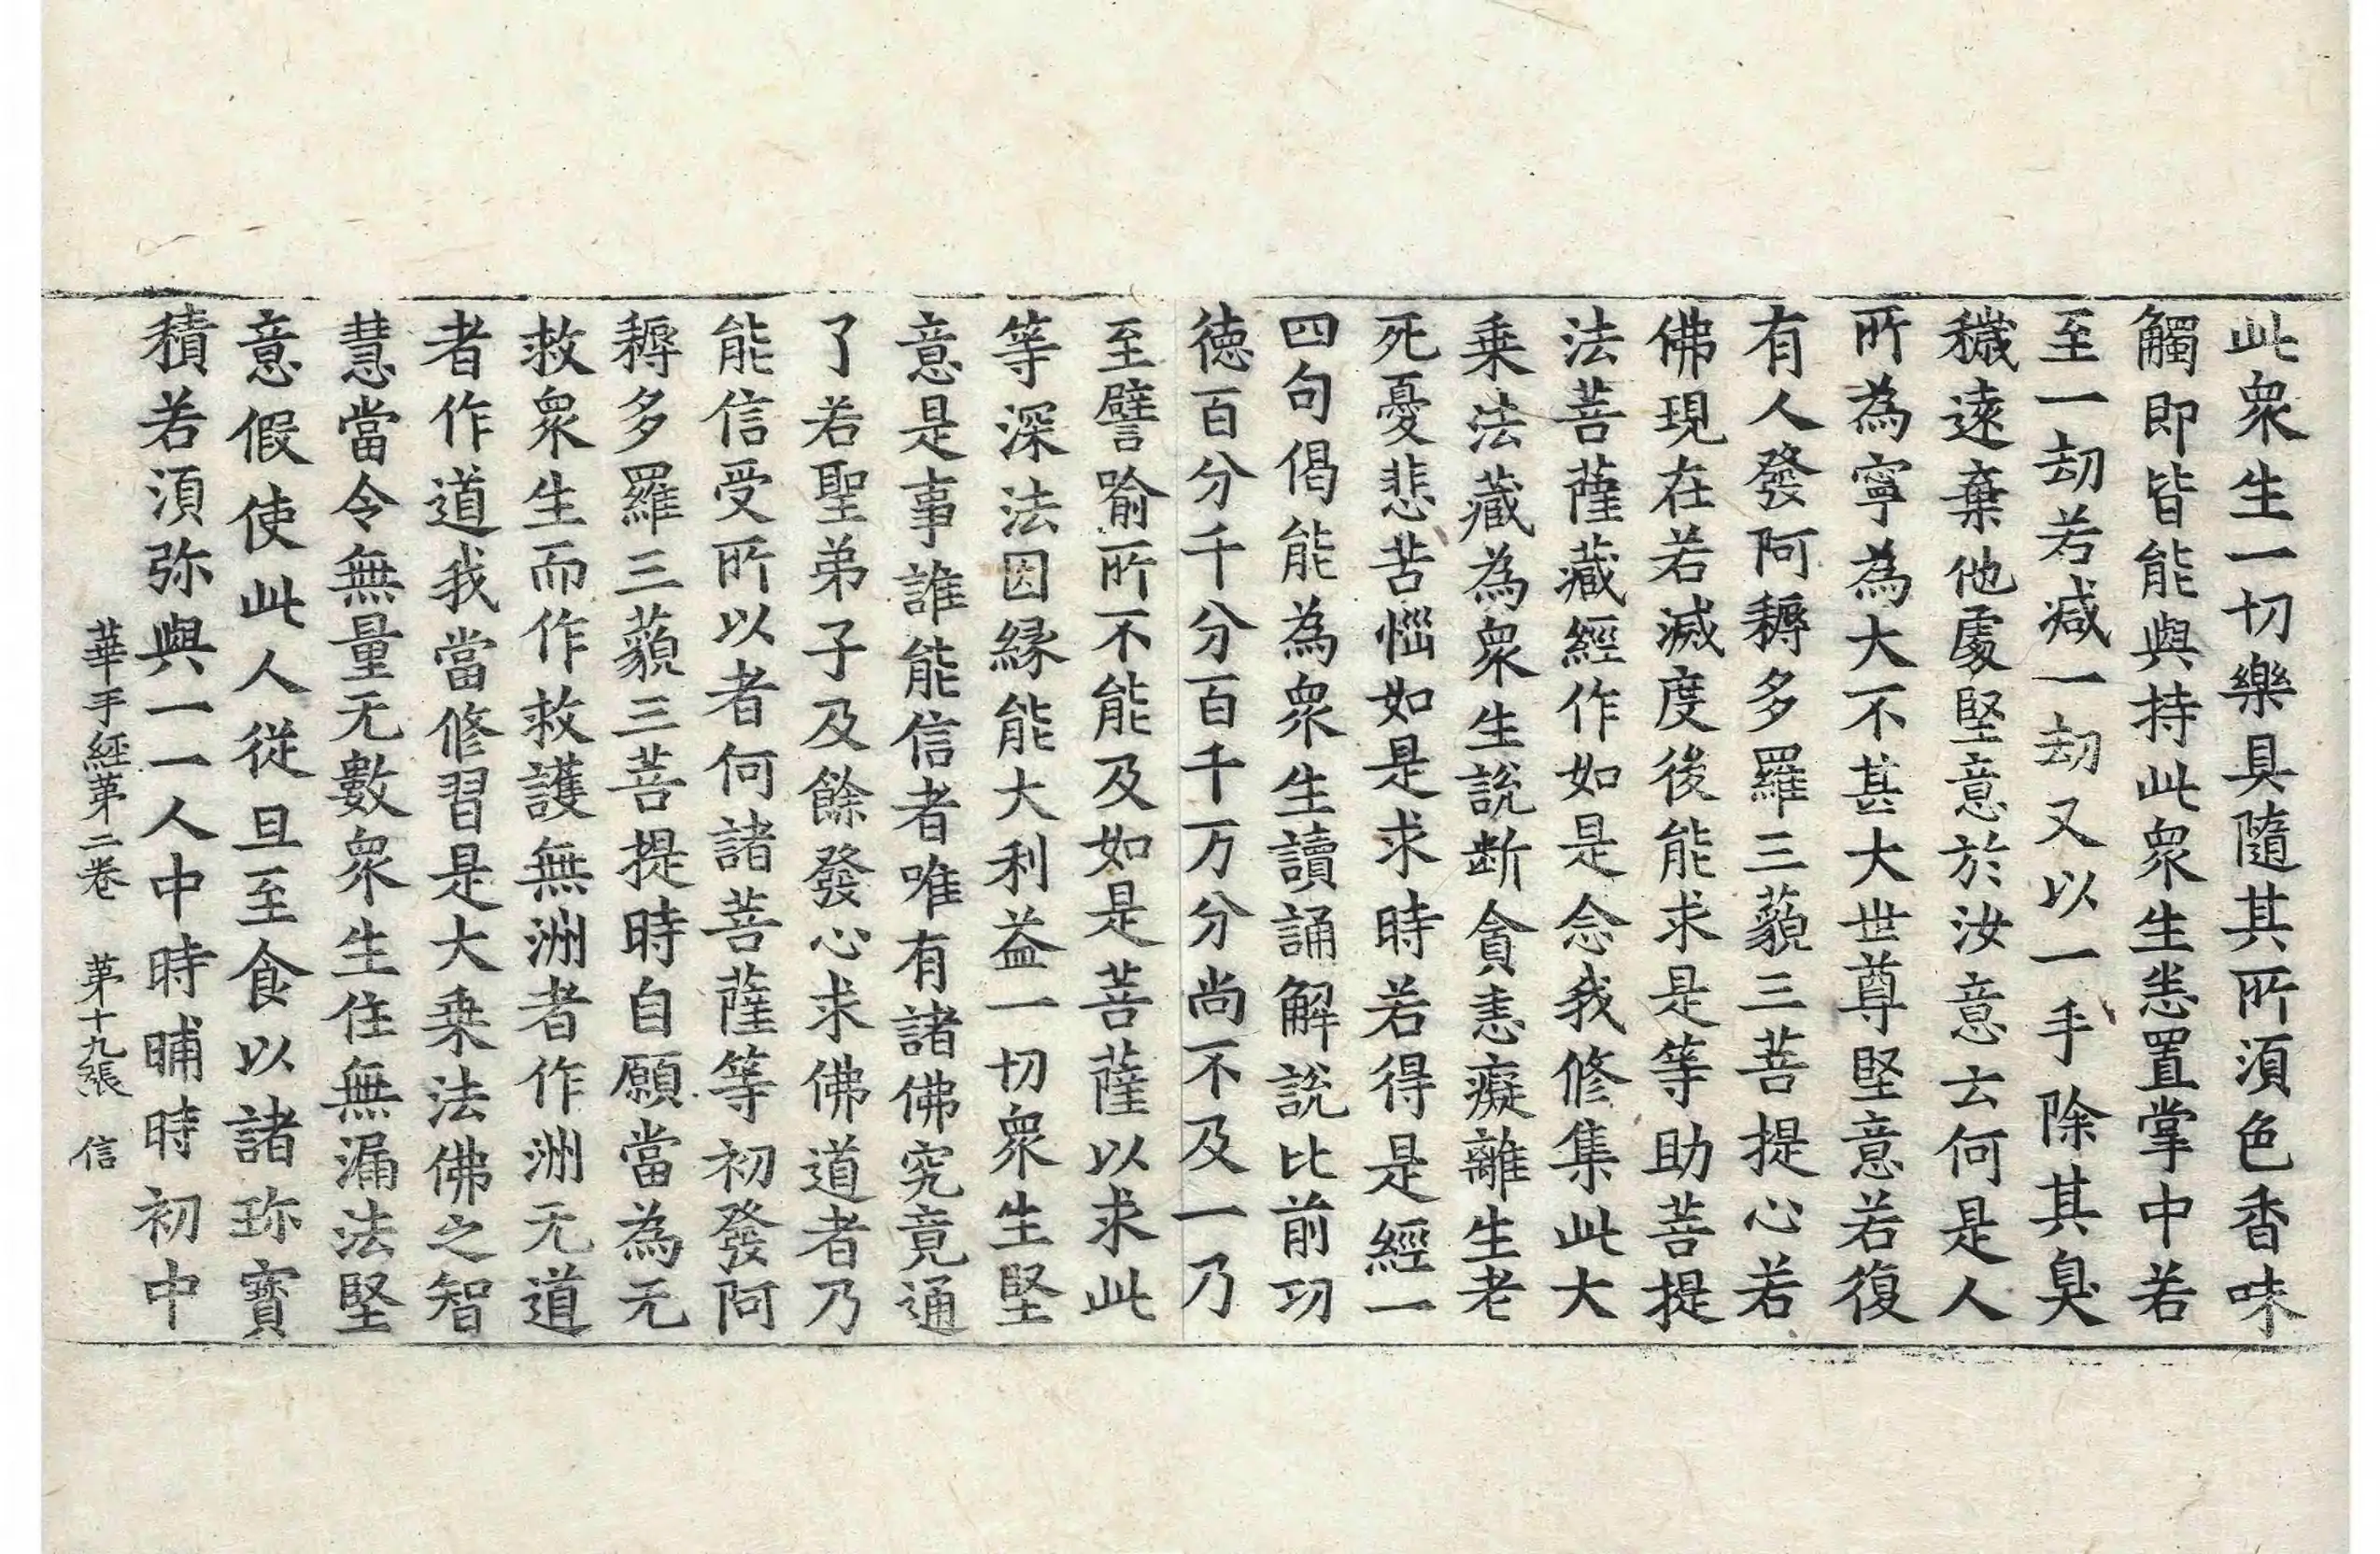 此衆生一切樂具隨其所須色香味
觸即皆能與持此衆生悉置掌中若
至一劫若减一劫又以一手除其臭
穢遠棄他處堅意於汝意云何是人
所為寧為大不甚大世尊堅意若復
有人發阿耨多羅三藐三菩提心若
佛現在若滅度後能求是等助菩提
法菩薩藏經作如是念我修集此大
乗法藏為衆生說断貪恚癡離生老
死憂悲苦惱如是求時若得是經一
四句偈能為衆生讀誦解說比前功
徳百分千分百千万分尚不及一乃
至譬喻所不能及如是菩薩以求此
等深法因縁能大利益一切衆生堅
意是事誰能信者唯有諸佛究竟通
了若聖弟子及餘發心求佛道者乃
能信受所以者何諸菩薩等初發阿
耨多羅三藐三菩提時自願當為无
救衆生而作救護無洲者作洲无道
者作道我當修習是大乗法佛之智
慧當令無量无數衆生住無漏法堅
意假使此人從旦至食以諸珎寶
積若須弥與一一人中時晡時初中
華手經第二卷 第十九張 信